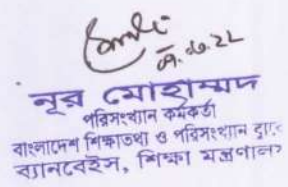 নূর মোহাম্মদ
পরিসংখ্যান কর্মকর্তা
বাংলাদেশ শিক্ষাতথ্য ও পরিসংখ্যান ব্যুরো
ব্যানবেইস, শিক্ষা মন্ত্রণালয়